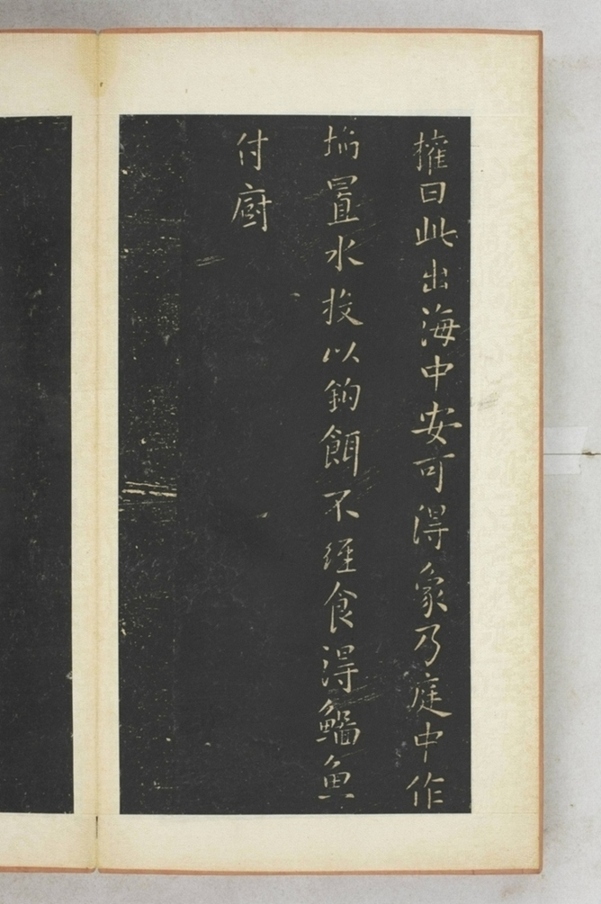 權曰此出海中安可得象乃庭中作
坮置水投以鉤餌不經食得鯔魚
付廚